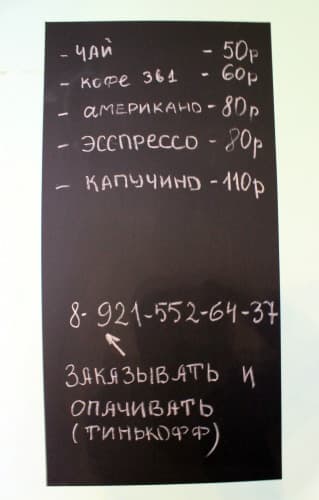 - ЧАЙ - 50р
- КОФЕ 3в1 - 60р
- АМЕРИКАНО - 80р
- ЭССПРЕССО - 80р
- КАПУЧИНО - 110р
8-921-552-64-37
ЗАКАЗЫВАТЬ И
ОПАЧИВАТЬ
(ТИНЬКОФФ)